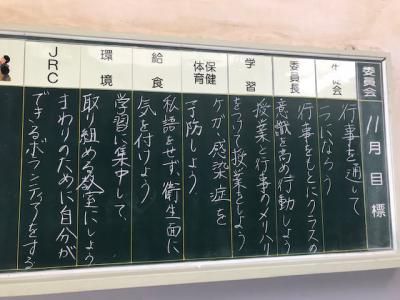 委員会 11月目標
生徒会
行事を通して
一つになろう
委員長
行事をもとにクラスの
意識を高め行動しよう
学習
授業と行事のメリハリ
をつけて授業をしよう
保健
体育
ケガ、感染症を
予防しよう
給食
私語をせず、衛生面に
気を付けよう
環境
学習に集中して、
取り組める教室にしよう
JRC
まわりのために自分が
できるボランティアをする